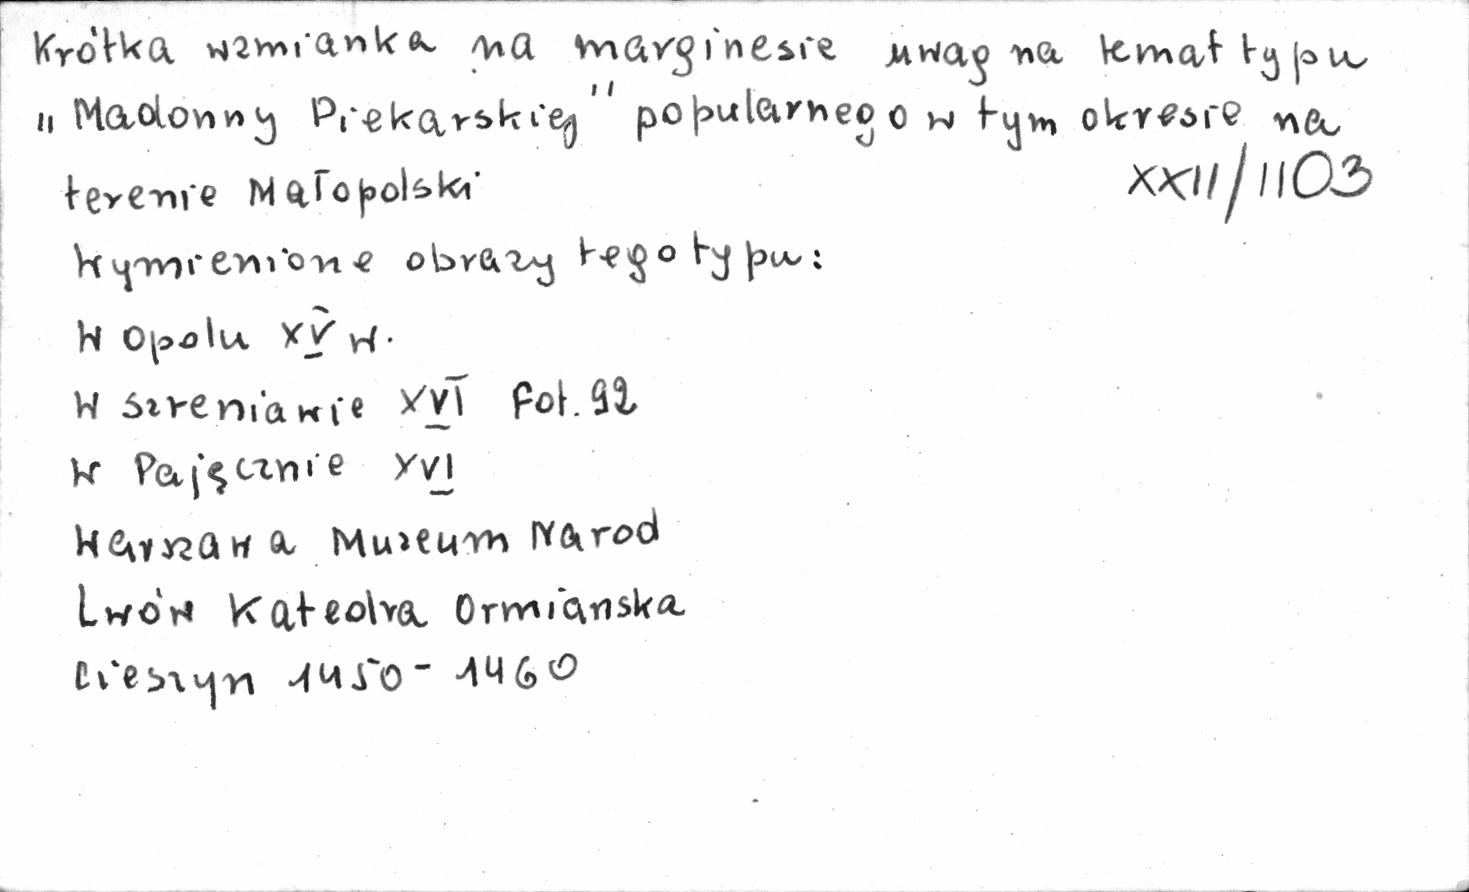 Krótka wzmianka na marginesie uwag na temat typu
„Madonny Piekarskiej" popularnego w tym okresie na
terenie Małopolski
XXII/1103
Wymienione obrazy tego typu:
W Opolu XV w.
W Szreniawie XVI Fot. 92
W Pajęcznie XVI
Warszawa Muzeum Narod
Lwów Katedra Ormianska
Cieszyn 1450-1460